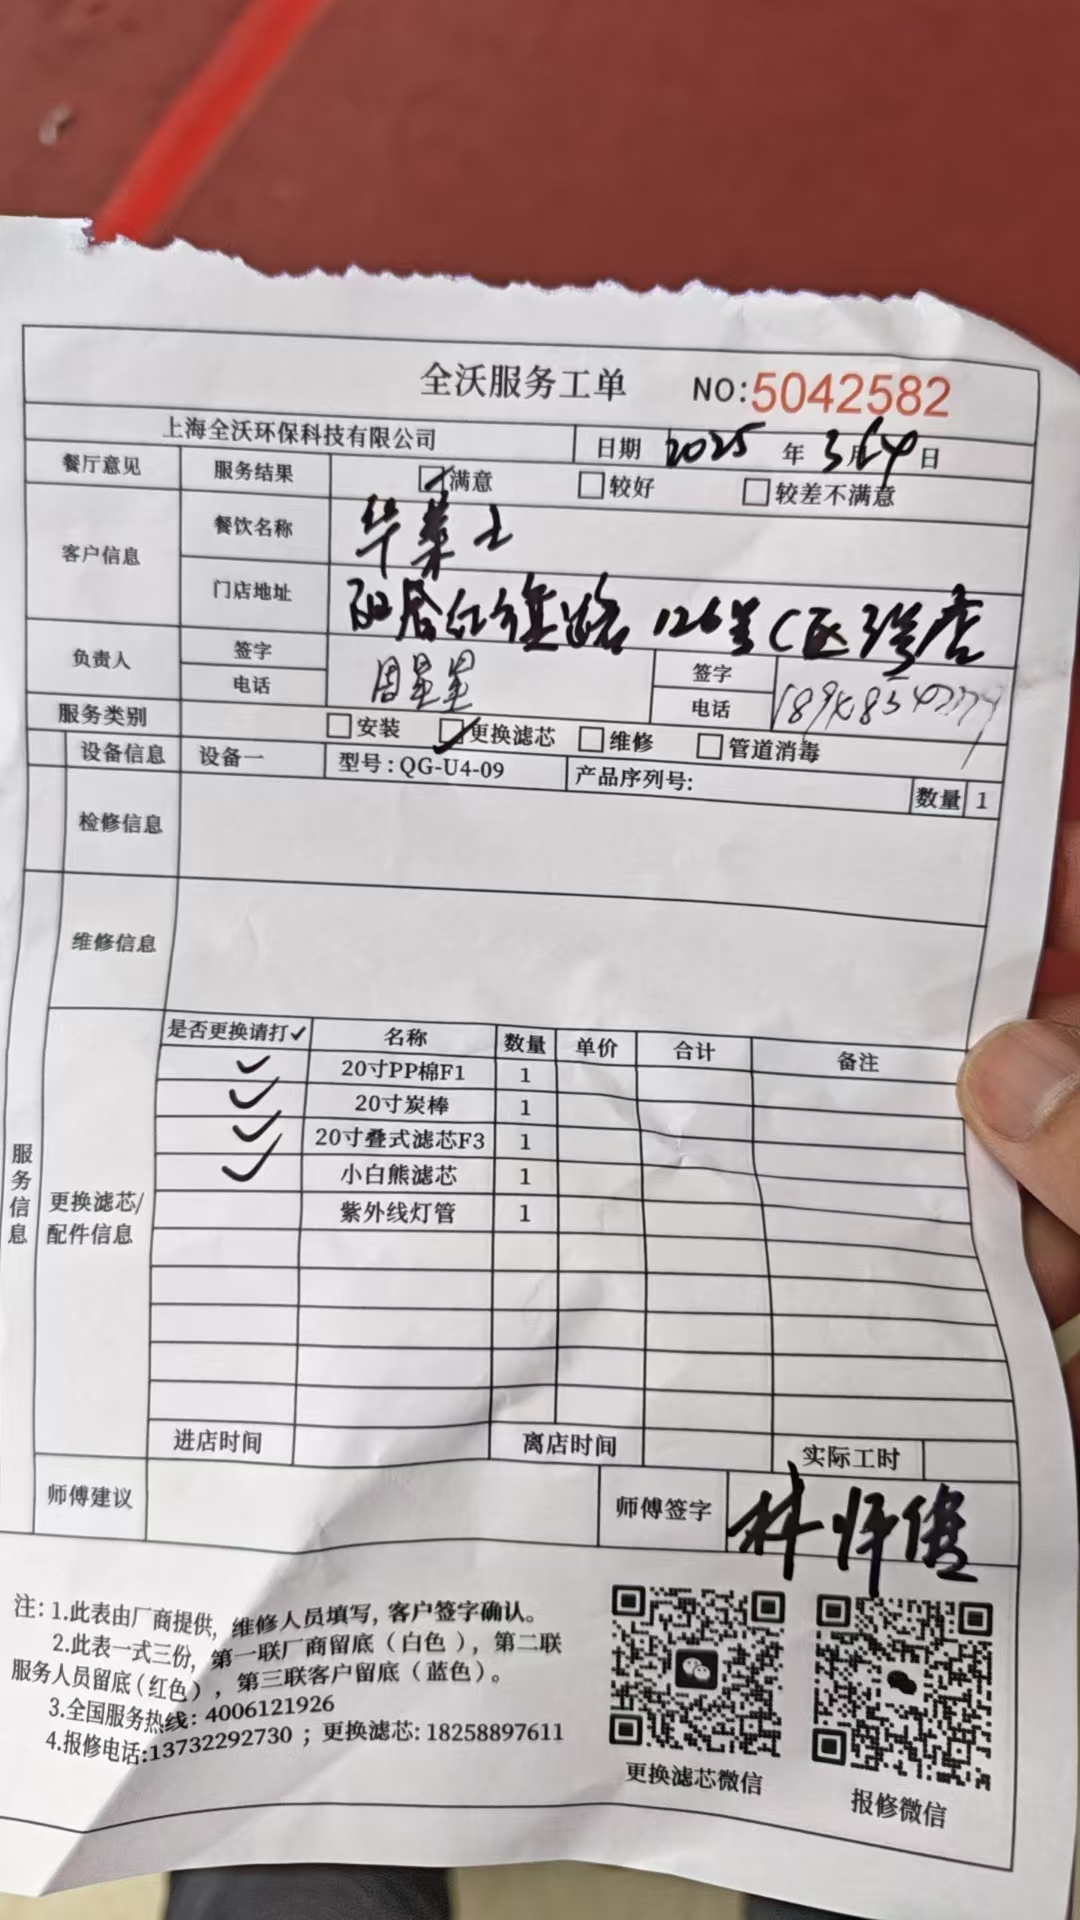 全沃服务工单 NO:5042582
上海全沃环保科技有限公司 日期 2025 年 3月14日
餐厅意见 服务结果 ☑满意 □较好 □较差不满意
客户信息 餐饮名称 华莱士
门店地址 126号C区
负责人 签字 周星星 签字
电话 电话
服务类别 □安装 ☑更换滤芯 □维修 □管道消毒
设备信息 设备一 型号:QG-U4-09 产品序列号: 数量 1
检修信息
维修信息
服务信息
更换滤芯/配件信息
是否更换请打✓ 名称 数量 单价 合计 备注
✓ 20寸PP棉F1 1
✓ 20寸炭棒 1
✓ 20寸叠式滤芯F3 1
✓ 小白熊滤芯 1
紫外线灯管 1
进店时间 离店时间 实际工时
师傅建议 师傅签字 林
注: 1.此表由厂商提供, 维修人员填写, 客户签字确认。
2.此表一式三份, 第一联厂商留底(白色), 第二联
服务人员留底(红色), 第三联客户留底(蓝色)。
3.全国服务热线: 4006121926
4.报修电话:13732292730 ; 更换滤芯: 18258897611
更换滤芯微信 报修微信